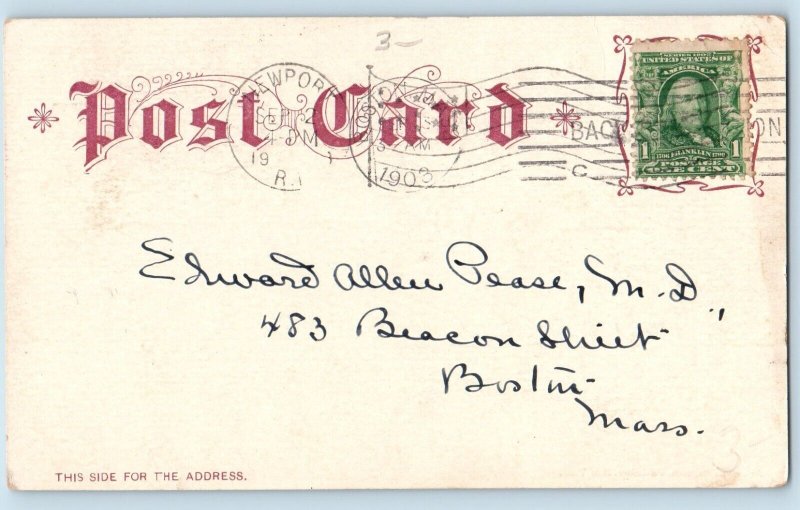 3-
Post Card
NEWPORT
SEP 2
PM
19
R.I.
1903
BACK
ON
SERIES 1902
UNITED STATES OF
AMERICA
1 1
1706 FRANKLIN 1790
POSTAGE
ONE CENT
Edward Allen Pease, M.D.,
483 Beacon Street
Boston
Mass.
THIS SIDE FOR THE ADDRESS.